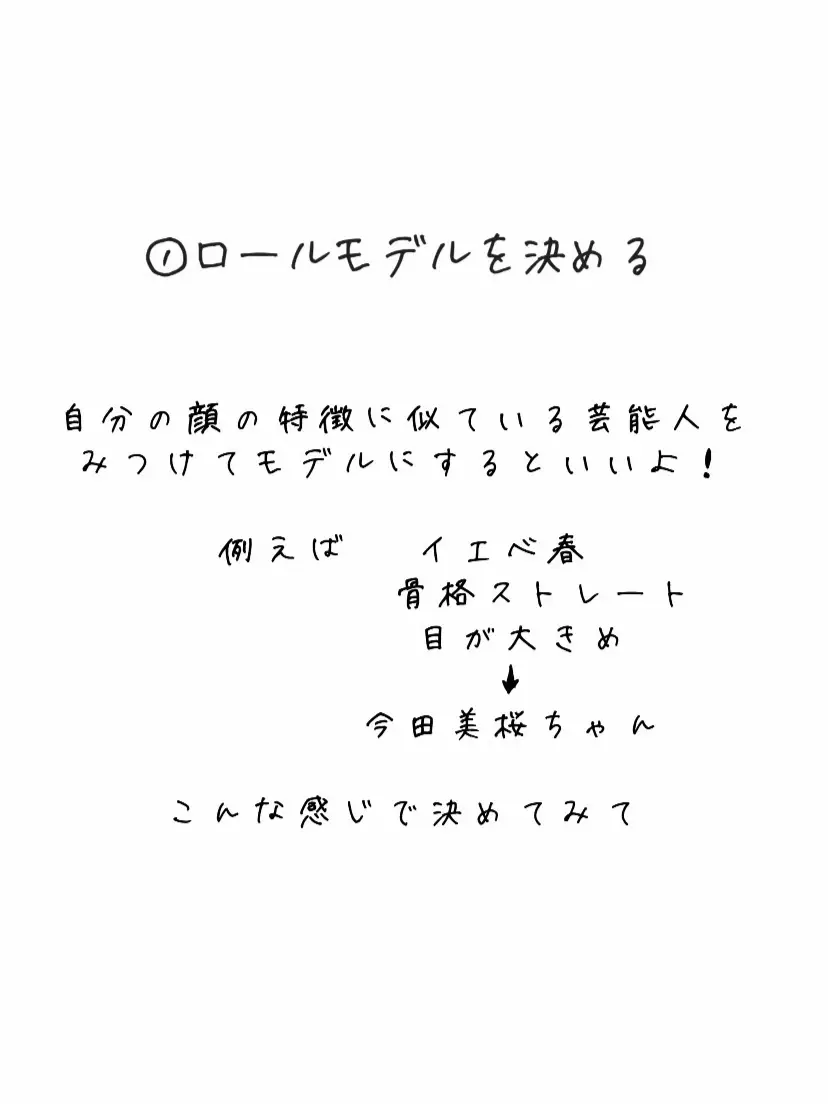 ①ロールモデルを決める
自分の顔の特徴に似ている芸能人を
みつけてモデルにするといいよ!
例えば イエベ春
骨格ストレート
目が大きめ
↓
今田美桜ちゃん
こんな感じで決めてみて